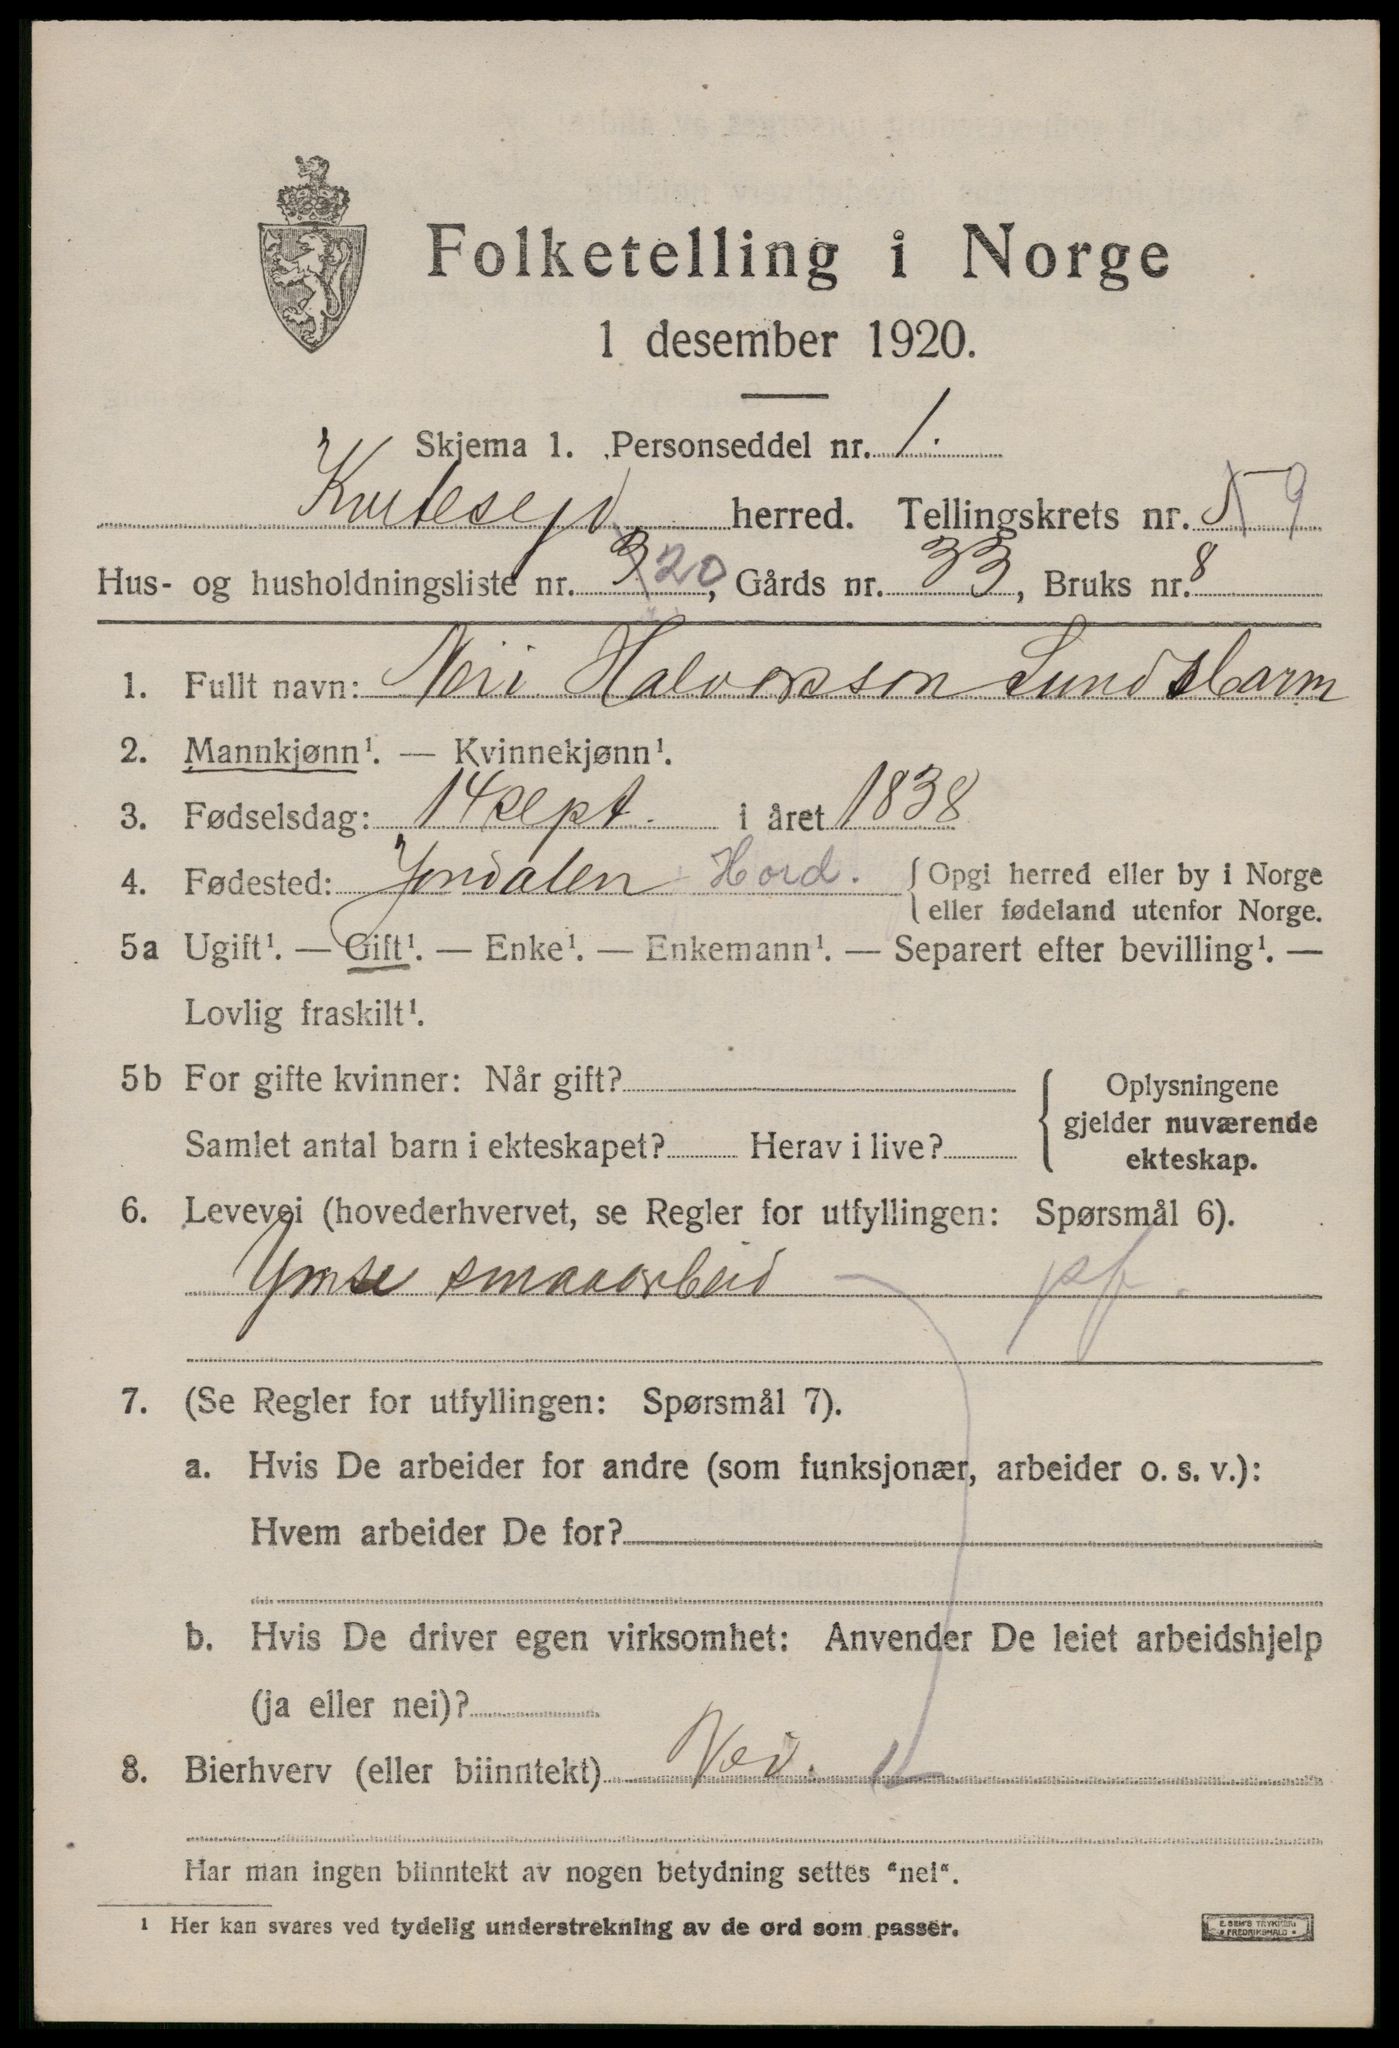 Folketelling i Norge
1 desember 1920.
Skjema 1. Personseddel nr. 1.
Kviteseyd herred. Tellingskrets nr. 5 9
Hus- og husholdningsliste nr. 3 20, Gårds nr. 33, Bruks nr. 8
1. Fullt navn: Neri Halvorson Lundsbarm
2. Mannkjønn¹. — Kvinnekjønn¹.
3. Fødselsdag: 14 sept. i året 1838
4. Fødested: Jondalen Hord. { Opgi herred eller by i Norge
eller fødeland utenfor Norge.
5a Ugift¹. — Gift¹. — Enke¹. — Enkemann¹. — Separert efter bevilling¹. —
Lovlig fraskilt¹.
5b For gifte kvinner: Når gift?
Samlet antal barn i ekteskapet? Herav i live?
Oplysningene
gjelder nuværende
ekteskap.
6. Levevei (hovederhvervet, se Regler for utfyllingen: Spørsmål 6).
Ymse smaaarbeid pf.
7. (Se Regler for utfyllingen: Spørsmål 7).
a. Hvis De arbeider for andre (som funksjonær, arbeider o. s. v.):
Hvem arbeider De for?
b. Hvis De driver egen virksomhet: Anvender De leiet arbeidshjelp
(ja eller nei)?
8. Bierhverv (eller biinntekt) Nei.
Har man ingen biinntekt av nogen betydning settes "nei".
1 Her kan svares ved tydelig understrekning av de ord som passer.
E. SEM'S TRYKKERI
FREDRIKSHALD